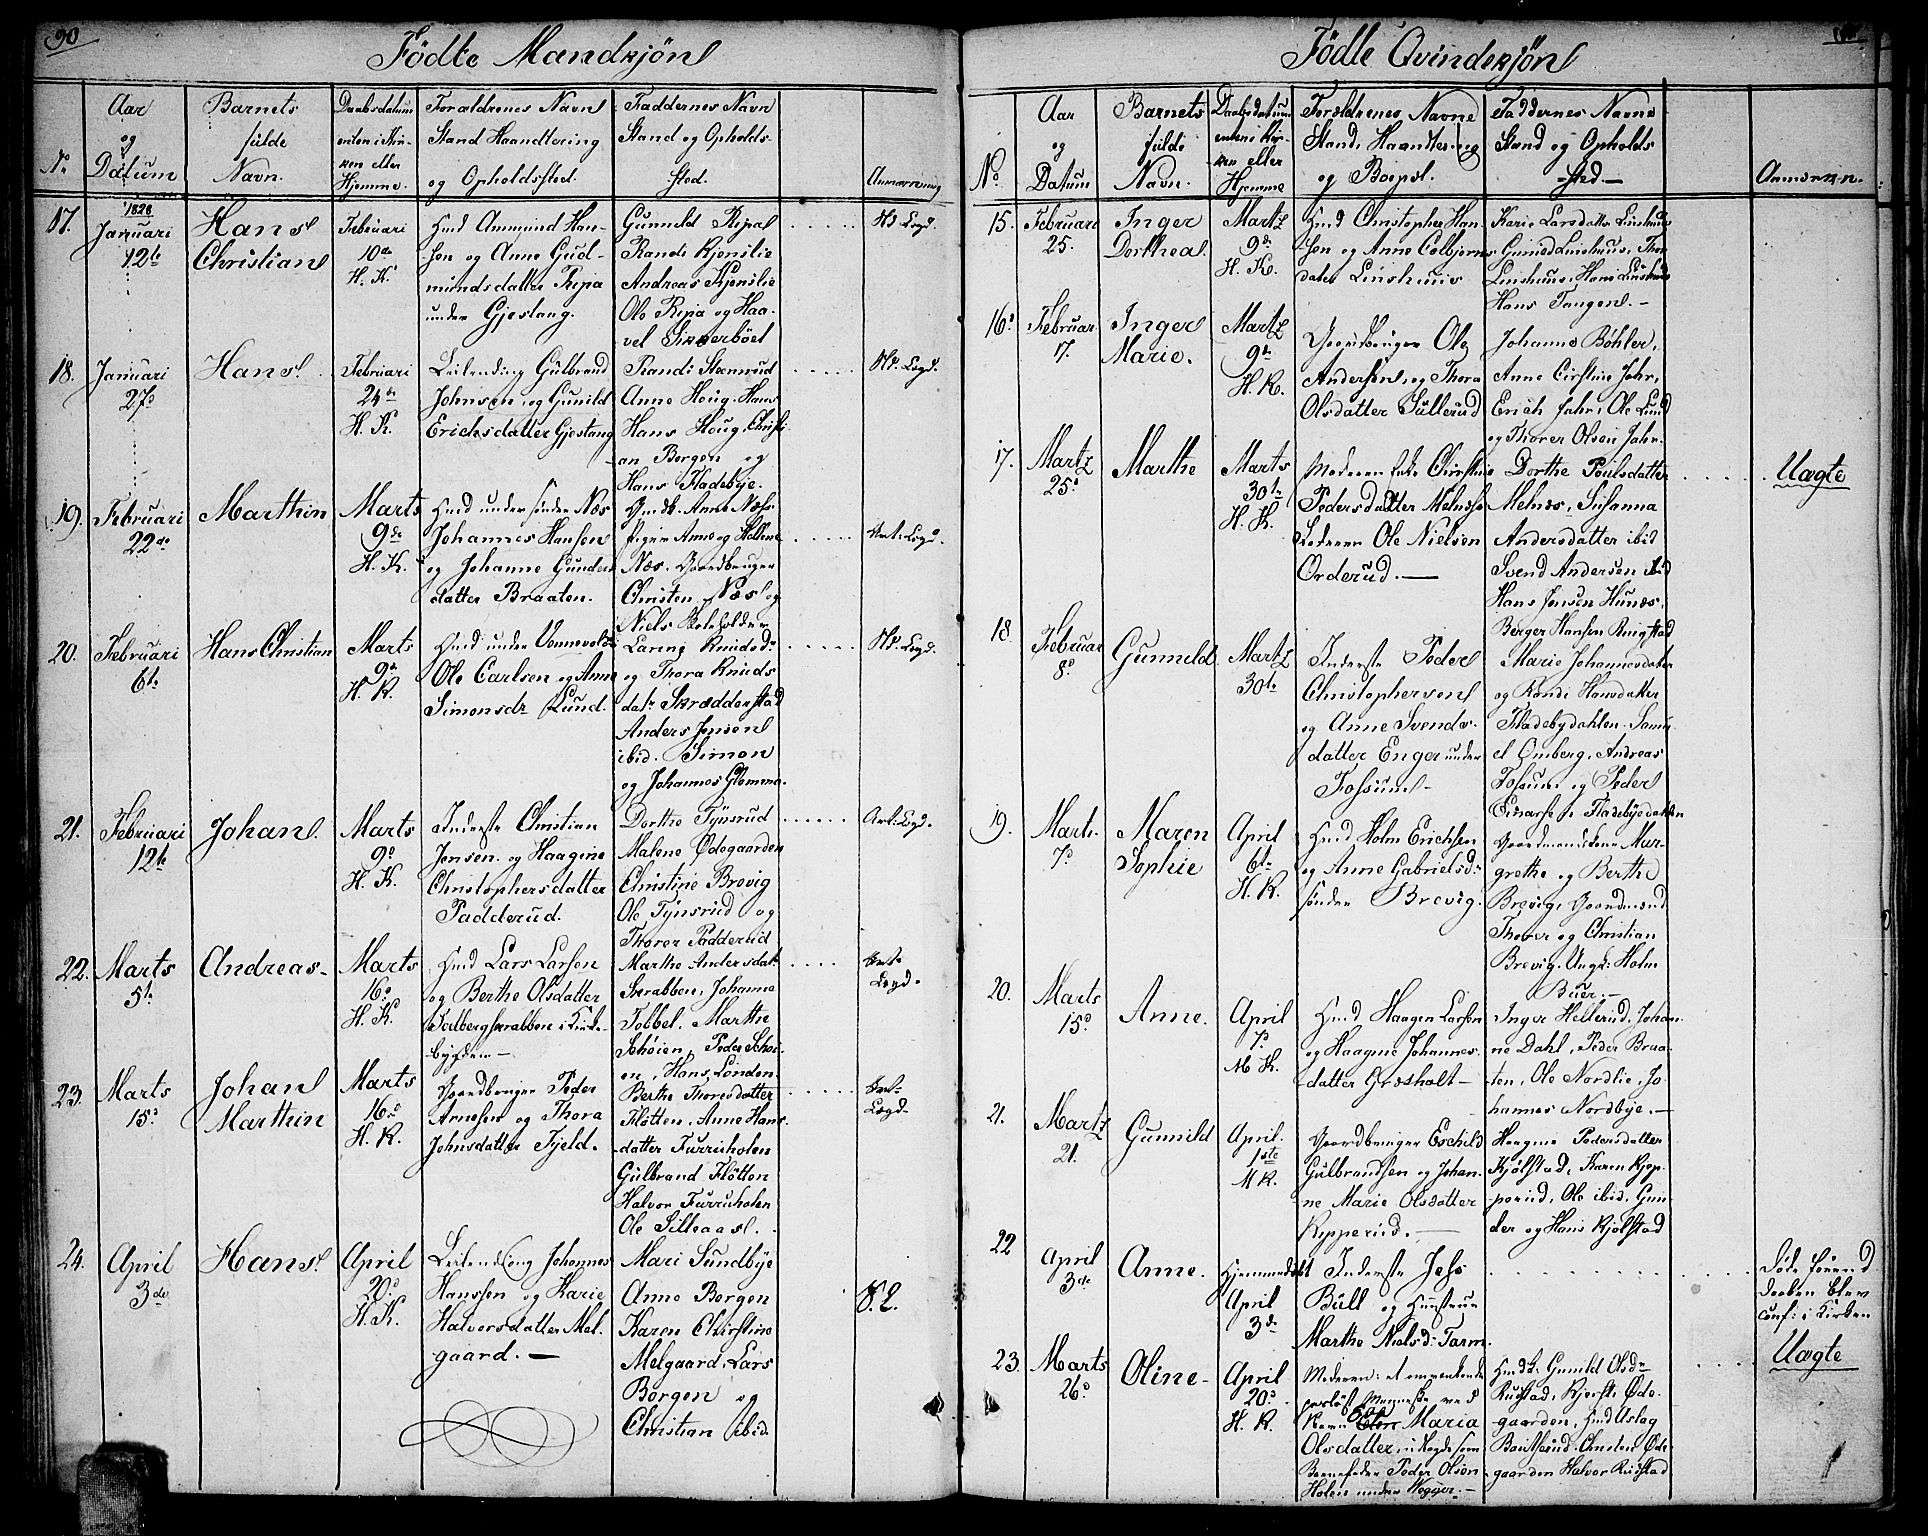 90
Födte Mandkjön
Aar
og
Datum
Barnets
fulde
Navn.
Daabsdatum
enten i Kir-
ken eller
Hjemme.
Foraldrenes Navne
Stand Haandtering
og Opholdssted.
Faddernes Navn
Stand og Opholds-
sted.
Anmærkning
No
17.
1828
Januari
12te
Hans
Christian
Februari
10de
H. K.
Huusmand Ammund Han-
sen og Anne Gud-
mundsdatter Ripa
under Gjestang.
Gunneld Ripa
Randi Kjenslie
Andreas Kjenslie
Ole Ripa og Haa-
vel
18.
Januari
27d
Hans
Februari
24de
H. K.
Leilending Gulbrand
Johnsen og Gunild
Erichsdatter Gjestang
Randi Steenrud
Anne Houg. Hans
Hans Houg, Christi
an Borgen og
Hans Fladebye.
19.
Februari
22de
Marthin
Marts
9de
H. K.
Huusd under söndre Næs
Johannes Hansen
og Johanne Gunders
datter Braaten.
Anne Næss
Pigen Anne og Hellene
Næs. Gaardbruger
Christen Næs og
Niels
20.
Februari
6te
Hans Christian
Marts
9de
H. K.
Ole Carlsen og Anne
Simonsdr Lund.
Laring Knudsdr
og Thora Knuds
datr Skrædderstad
Anders Jensen
ibid. Simon
og Johannes Glomma.
21.
Februari
12te
Johan
Marts
9d
H. K.
Inderste Christian
Jensen og Haagine
Christophersdatter
Padderud.
Dorthe Tynsrud
Malene Ødegaarden
Christine Brevig
Ole Tynsrud og
Thorer Padderud
22.
Marts
5te
Andreas-
Marts
16d
H. K.
Huusd Lars Larsen
og Berthe Olsdatter
bygden-
Marthe Andersdatr
Skrabben, Johanne
Tobbel. Marthe
Schöien, Peder Schöi-
en, Hans Londen.
23.
Marts
15d
Johan
Marthin
Marts
16d
H. K.
Gaardbruger Peder
Arnesen og Thora
Johnsdatter Fjeld.
Berthe Thoresdatter
Flötten, Anne Hans-
datter Furruholen
Gulbrand Flötten
Halvor Furruholen
Ole Silleaas.
24.
April
3de
Hans.
April
20d
H. K.
Leilending Johannes
Hanssen og Karie
Halvorsdatter Mel-
gaard.-
Mari Sundbye
Anne Borgen
Karen Christine
Melgaard, Lars
Borgen og
Christian ibid.
Födte Qvindekjön
No
Aar
og
Datum
Barnets
fulde
Navn.
Daabsdatum
enten i Kir-
ken eller
Hjemme
Forældrenes Navne
Stand, Haandtering
og Bopæl.
Faddernes Navne
Stand og Opholds
-sted-
Anmærkn.
15.
Februari
25.
Inger
Dorthea.
Martz
9de
H. K.
Huusd Christopher Han-
sen og Anne Colbjörns
datter Linshuus
Karie Larsdatter Linshuus
Gunild Linshuus, Thor
Linshuus, Hans Linshuus
Hans Tangen.-
16d
Februar
17.
Inger
Marie.
Martz
9de
H. K.
Gaardbruger Ole
Andersen og Thora
Olsdatter Sullerud
Johanne Böhler,
Anne Cirstine Jahr,
Erich Jahr, Ole Lund
og Thorer Olsen Jahr.
17.
Martz
25d
Marthe
Marts
30te
H. K.
Moderen Enke Cirstine
Pedersdatter Melnes
Ole Nielsen
Orderud.-
Dorthe Poulsdatter
Melnes, Susanna
Andersdatter ibid
Svend Andersen ibid
Hans Jensen Hunæs,
Berger Hansen Ringstad
Uægte
18
Februar
8d
Gunnild
Martz
30te
Inderste Peder
Christophersen
og Anne Svends-
datter Enger under
Fossum-
Marie Johannesdatter
og Randi Hansdatter
Fladebydahlen. Samu
el Omberg, Andreas
Fossum og Peder
Einarsen Fladebyedahlen
19.
Marts.
7d
Maren
Sophie
April
6te
H. K.
Huusd Holm Erichsen
og Anne Gabrielsdr
söndre Brevig.
Gaardmandskone Mar-
grethe og Berthe
Brevig, Gaardmænd
Thorer og Christian
Brevig. Ungk: Holm
Buer.-
20.
Marts
15d
Anne.
April
7d
M K.
Huusd Haagen Larsen
og Haagine Johannes-
datter Græsholt-
Inger Hellerud, Johan
ne Dahl, Peder Braa-
ten, Ole Nordlie, Jo
hannes Nordbye.-
21.
Martz
21.
Gunnild
April.
1ste
M K.
Gaardbruger Eschild
Gulbrandsen og Johan-
ne Marie Olsdatter
Kepperud.-
Haagine Pedersdatter
Kjölstad, Karen Kjep-
perud, Ole ibid, Gun-
der og Hans Kjölstad
22
April
3de
Anne.
Hjemmedöbt
April
3de
Inderste Jens
Bull og Hustrue
Marthe Nielsdr Tarm.
Döde förend
Daaben blev
conf: i Kirken
23.
Marts
26d
Oline-
April
20d
H. K.
Moderen: et omvankende
Menneske ved
Navn Maria
Olsdatter,
Barnefader Peder Olsen
Holen under
Gunild Olsdr
Rustad, Kjersti Øde-
gaarden, Huusd Aslag
Christen Øde-
gaarden Halvor Rustad
Uægte